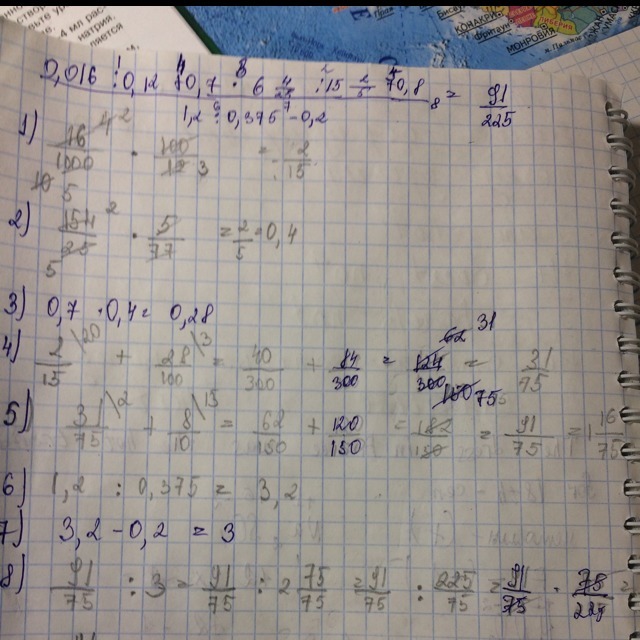 КОНАКРИ
ФРИТАУН
МОНРОВИЯ
0,016 : 0,12 + 0,7 · 6 4/25 : 15 2/5 + 0,8
1,2 : 0,375 - 0,2
= 91/225
1) 16/1000 · 100/12 = 2/15
2) 154/25 · 5/77 = 2/5 = 0,4
3) 0,7 · 0,4 = 0,28
4) 2/15 + 28/100 = 40/300 + 84/300 = 124/300 = 31/75
5) 31/75 + 8/10 = 62/150 + 120/150 = 182/150 = 91/75 = 1 16/75
6) 1,2 : 0,375 = 3,2
7) 3,2 - 0,2 = 3
8) 91/75 : 3 = 91/75 : 2 75/75 = 91/75 : 225/75 = 91/75 · 75/225 =